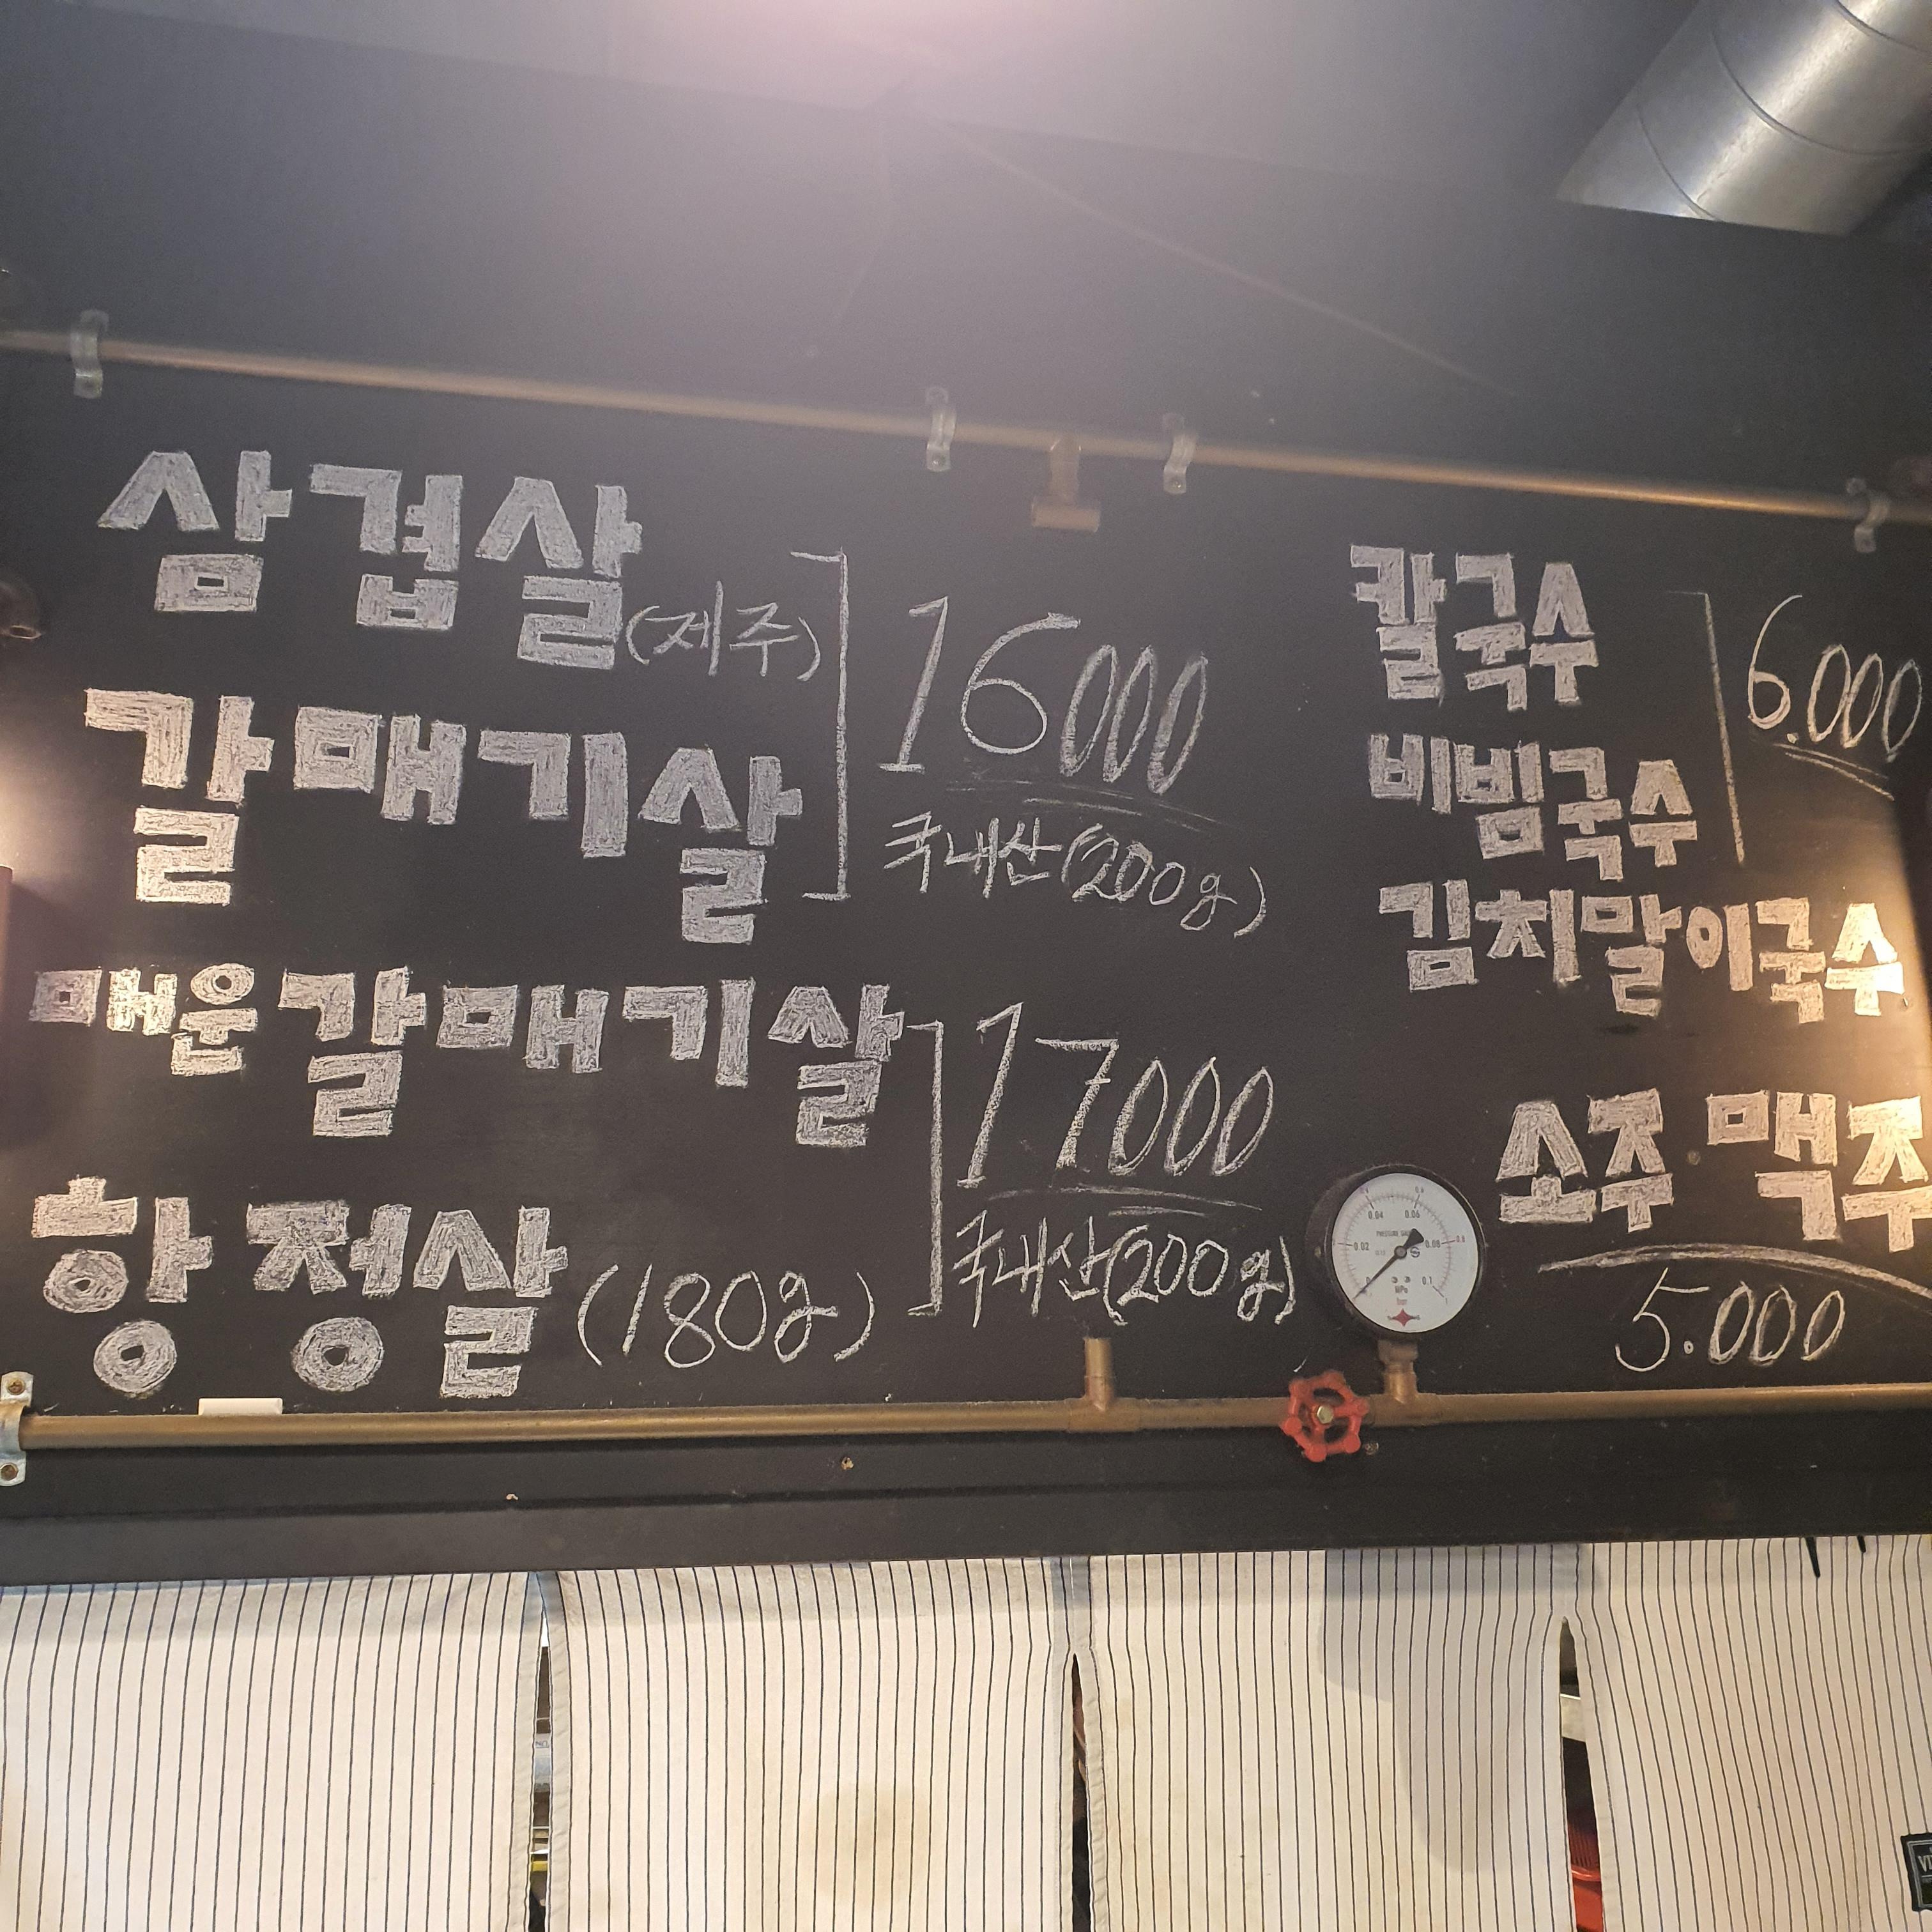 삼겹살(제주)
갈매기살
16000
국내산(200g)
매운갈매기살
항정살(180g)
17000
국내산(200g)
칼국수
비빔국수
6.000
김치말이국수
소주 맥주
5.000
0.04 0.06
PRESSURE GAUGE
0.02 0.08
0 0.1
MPa
bar